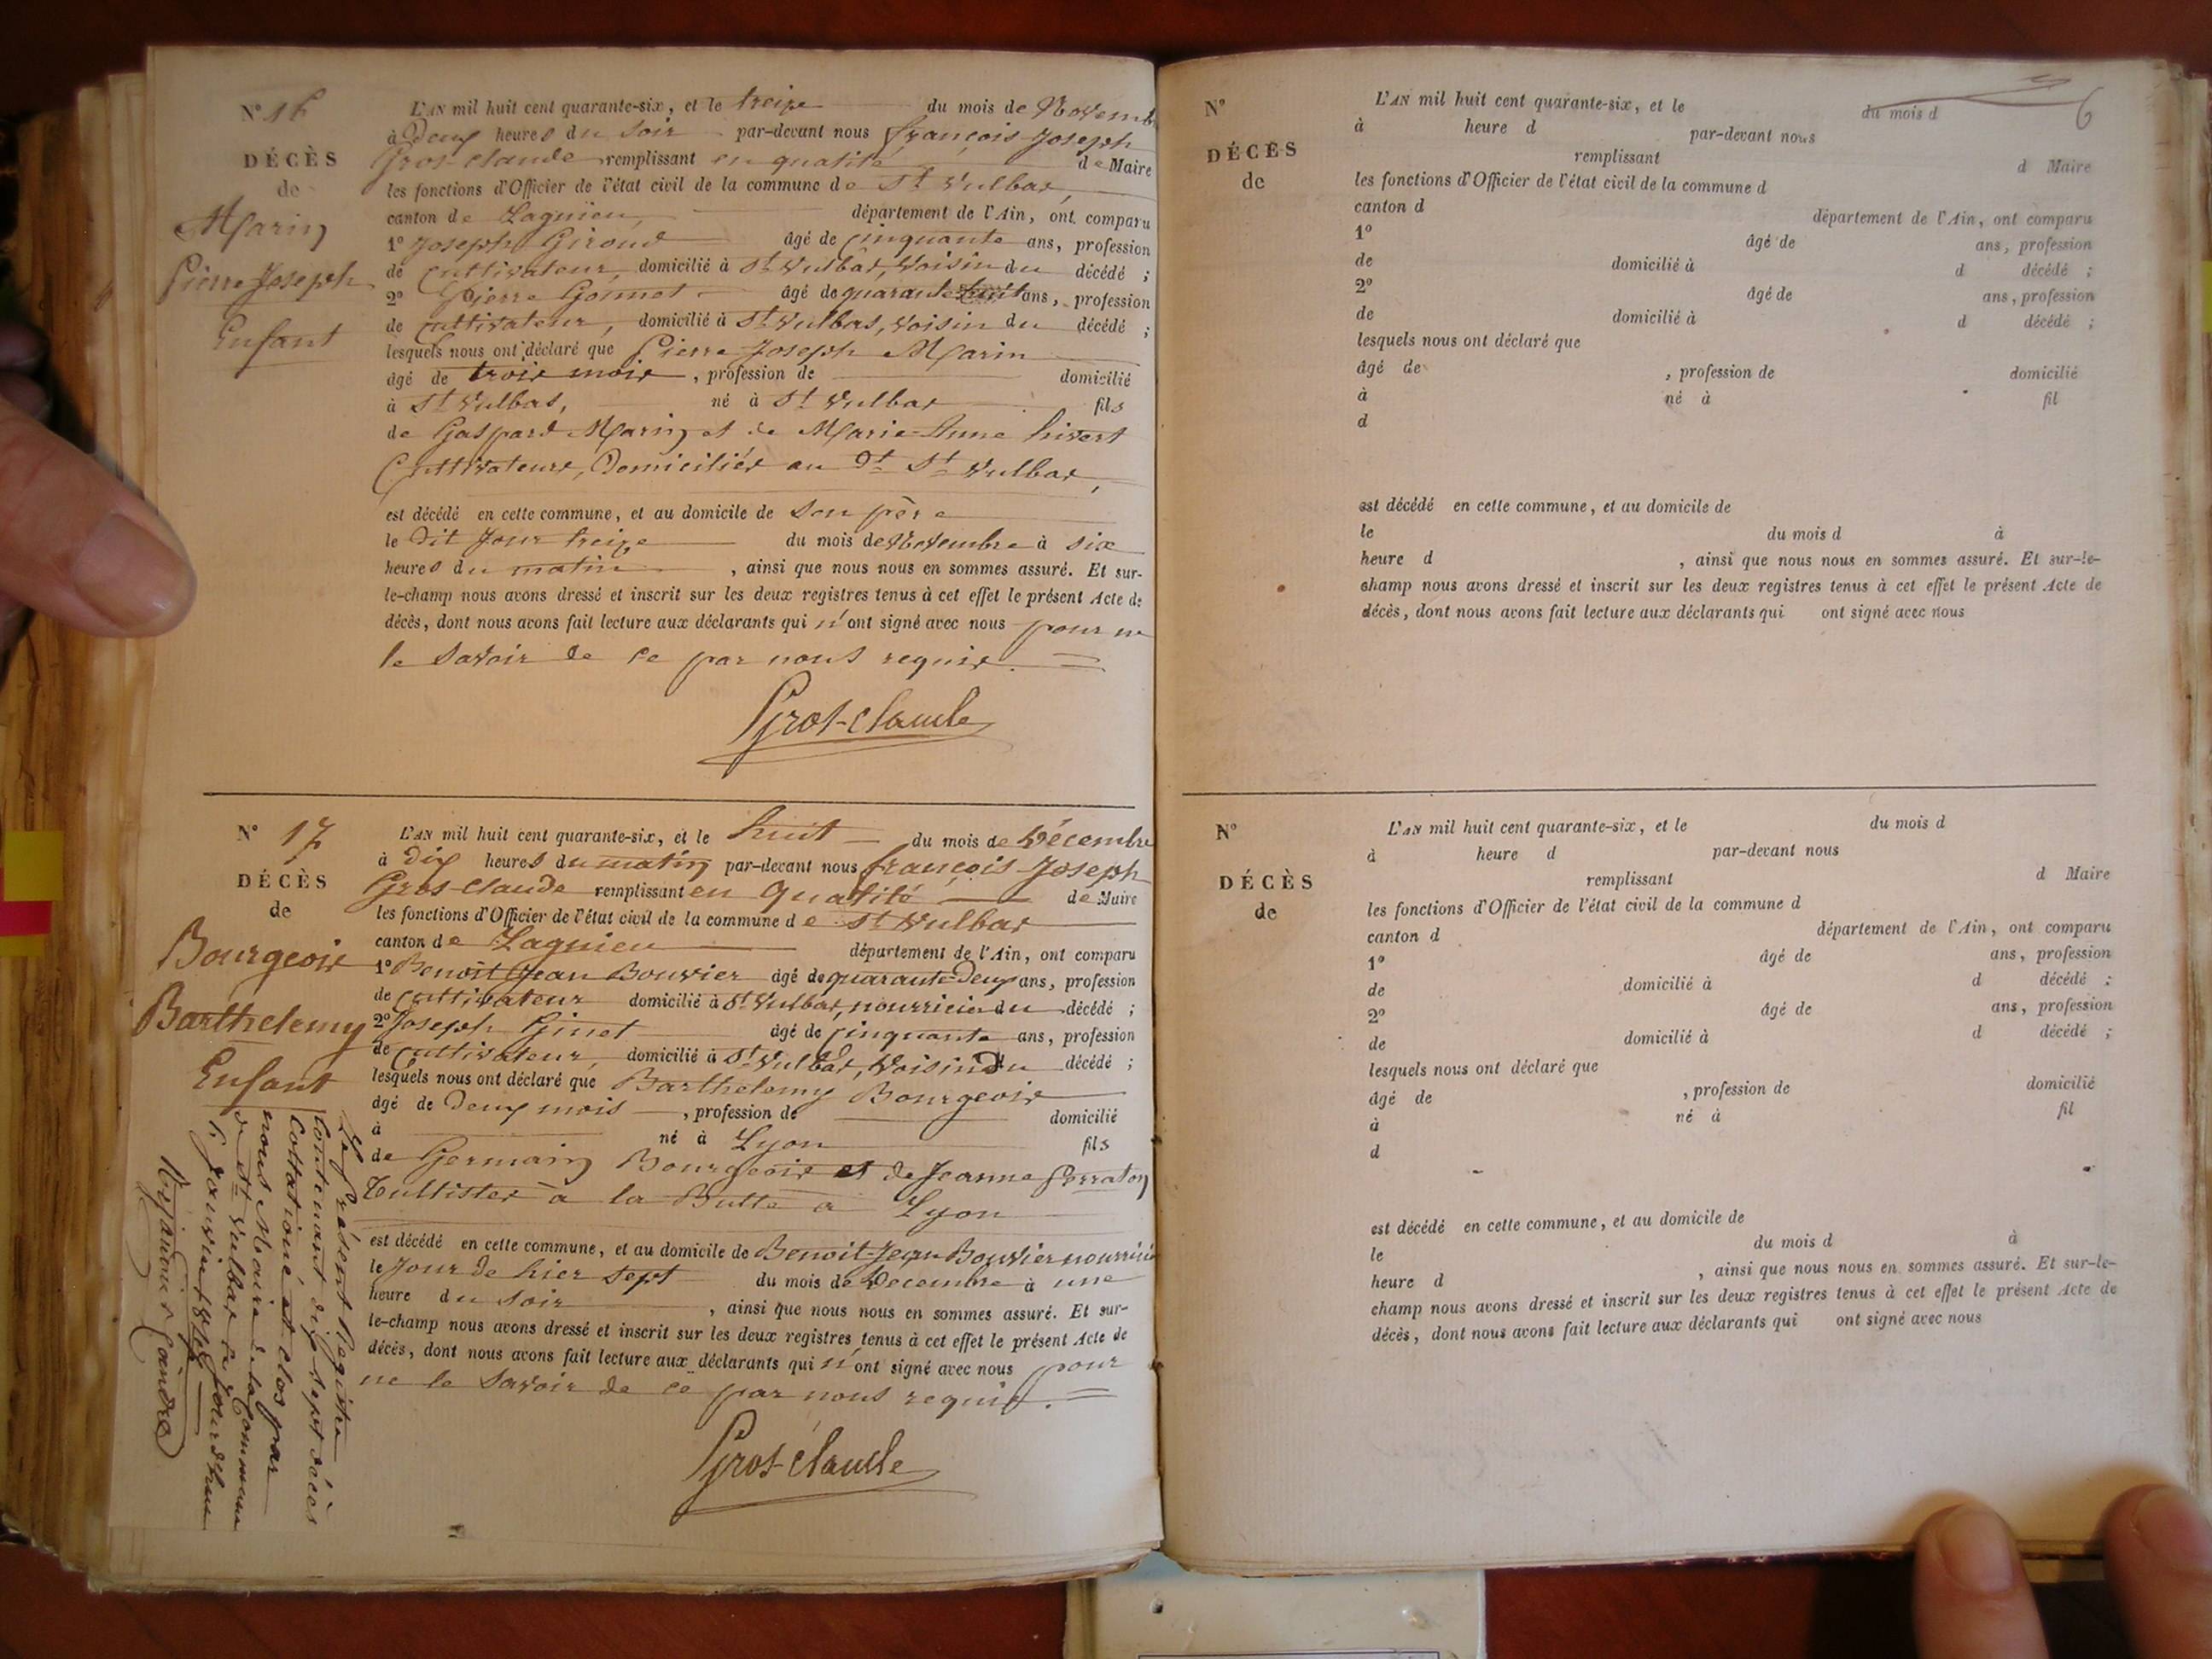 N° 16
DÉCÈS
de
Marin
Pierre Joseph
Enfant
L'AN mil huit cent quarante-six, et le treize du mois de Novembre
à Deux heures du soir par-devant nous françois Joseph
Gros-claude remplissant en qualité de Maire
les fonctions d'Officier de l'état civil de la commune de St Vulbas,
canton de Lagnieu, département de l'Ain, ont comparu
1° Joseph Giroud âgé de cinquante ans, profession
de Cultivateur, domicilié à St Vulbas, Voisin du décédé ;
2° Pierre Gonnet âgé de quarante huit ans, profession
de Cultivateur, domicilié à St Vulbas, Voisin du décédé ;
lesquels nous ont déclaré que Pierre Joseph Marin
âgé de trois mois, profession de domicilié
à St Vulbas, né à St Vulbas fils
de Gaspard Marin et de Marie-Anne hivert
Cultivateurs, Domiciliés au dt St Vulbas,
est décédé en cette commune, et au domicile de son père
le dit Jour treize du mois de Novembre à six
heures du matin, ainsi que nous nous en sommes assuré. Et sur-
le-champ nous avons dressé et inscrit sur les deux registres tenus à cet effet le présent Acte de
décès, dont nous avons fait lecture aux déclarants qui n'ont signé avec nous pour ne
le savoir de ce par nous requis.
Gros-claude
N° 17
DÉCÈS
de
Bourgeois
Barthelemy
Enfant
L'AN mil huit cent quarante-six, et le huit du mois de Décembre
à Dix heures du matin par-devant nous françois Joseph
Gros-claude remplissant en qualité de Maire
les fonctions d'Officier de l'état civil de la commune de St Vulbas
canton de Lagnieu département de l'Ain, ont comparu
1° Benoit Jean Bouvier âgé de quarante-Deux ans, profession
de Cultivateur domicilié à St Vulbas, nourricier du décédé ;
2° Joseph Ginet âgé de cinquante ans, profession
de Cultivateur, domicilié à St Vulbas, Voisin Du décédé ;
lesquels nous ont déclaré que Barthelemy Bourgeois
âgé de Deux mois, profession de domicilié
à né à Lyon fils
de Germain Bourgeois et de Jeanne Perraton
Tullistes à la Butte à Lyon
est décédé en cette commune, et au domicile de Benoit-Jean Bouvier nourricier
le Jour de hier sept du mois de Decembre à une
heure du soir, ainsi que nous nous en sommes assuré. Et sur-
le-champ nous avons dressé et inscrit sur les deux registres tenus à cet effet le présent Acte de
décès, dont nous avons fait lecture aux déclarants qui n'ont signé avec nous pour
ne le savoir de ce par nous requis.
Gros-claude
Le présent Registre
Contenant dix sept décès
Collationné et clos par
nous Maire de la Commune
de St Vulbas ce Jourd'hui
1er Janvier 1847
6
N°
DÉCÈS
de
L'AN mil huit cent quarante-six, et le du mois d
à heure d par-devant nous
remplissant d Maire
les fonctions d'Officier de l'état civil de la commune d
canton d département de l'Ain, ont comparu
1° âgé de ans, profession
de domicilié à d décédé ;
2° âgé de ans, profession
de domicilié à d décédé ;
lesquels nous ont déclaré que
âgé de , profession de domicilié
à né à fil
d
est décédé en cette commune, et au domicile de
le du mois d à
heure d , ainsi que nous nous en sommes assuré. Et sur-le-
champ nous avons dressé et inscrit sur les deux registres tenus à cet effet le présent Acte de
décès, dont nous avons fait lecture aux déclarants qui ont signé avec nous
N°
DÉCÈS
de
L'AN mil huit cent quarante-six, et le du mois d
à heure d par-devant nous
remplissant d Maire
les fonctions d'Officier de l'état civil de la commune d
canton d département de l'Ain, ont comparu
1° âgé de ans, profession
de domicilié à d décédé ;
2° âgé de ans, profession
de domicilié à d décédé ;
lesquels nous ont déclaré que
âgé de , profession de domicilié
à né à fil
d
est décédé en cette commune, et au domicile de
le du mois d à
heure d , ainsi que nous nous en sommes assuré. Et sur-le-
champ nous avons dressé et inscrit sur les deux registres tenus à cet effet le présent Acte de
décès, dont nous avons fait lecture aux déclarants qui ont signé avec nous